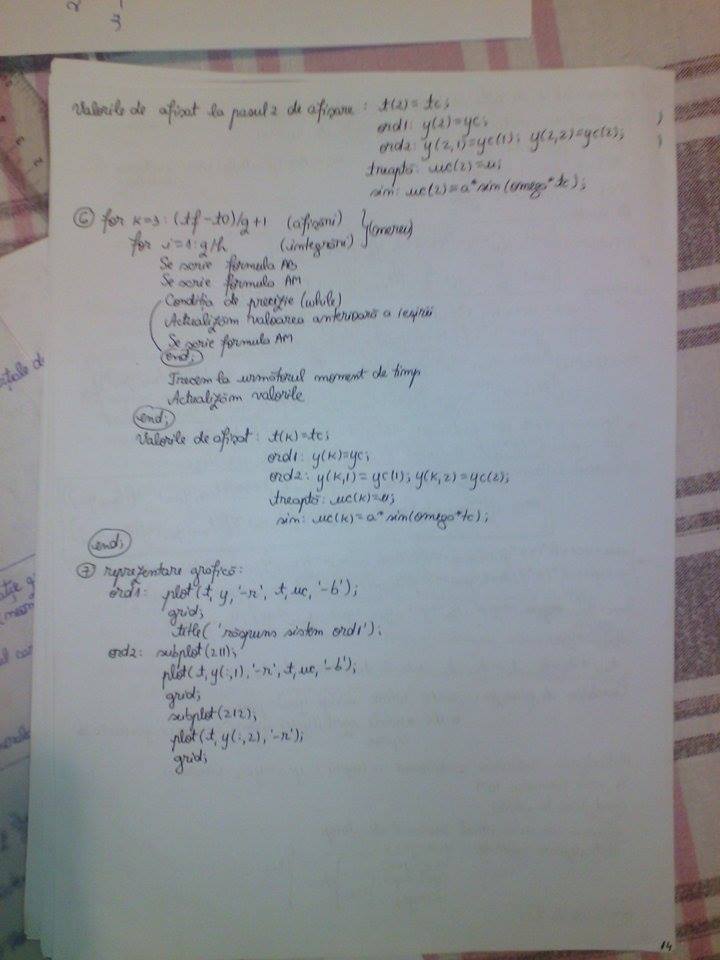 Valorile de afișat la pasul 2 de afișare : t(2)=tc;
ord1: y(2)=yc;
ord2: y(2,1)=yc(1); y(2,2)=yc(2);
treaptă: uc(2)=u;
sin: uc(2)=a*sin(omega*tc);
6 for k=3:(tf-t0)/g+1 (afișări)
for i=1:g/h (integrări) } (mereu)
Se scrie formula AB
Se scrie formula AM
Condiția de precizie (while)
Actualizăm valoarea anterioară a ieșirii
Se scrie formula AM
end;
Trecem la următorul moment de timp
Actualizăm valorile
end;
Valorile de afișat : t(k)=tc;
ord1: y(k)=yc;
ord2: y(k,1)=yc(1); y(k,2)=yc(2);
treaptă: uc(k)=u;
sin: uc(k)=a*sin(omega*tc);
end;
7 reprezentare grafică:
ord1: plot(t, y, '-r', t, uc, '-b');
grid;
title('răspuns sistem ord1');
ord2: subplot(211);
plot(t, y(:,1), '-r', t, uc, '-b');
grid;
subplot(212);
plot(t, y(:,2), '-r');
grid;
14